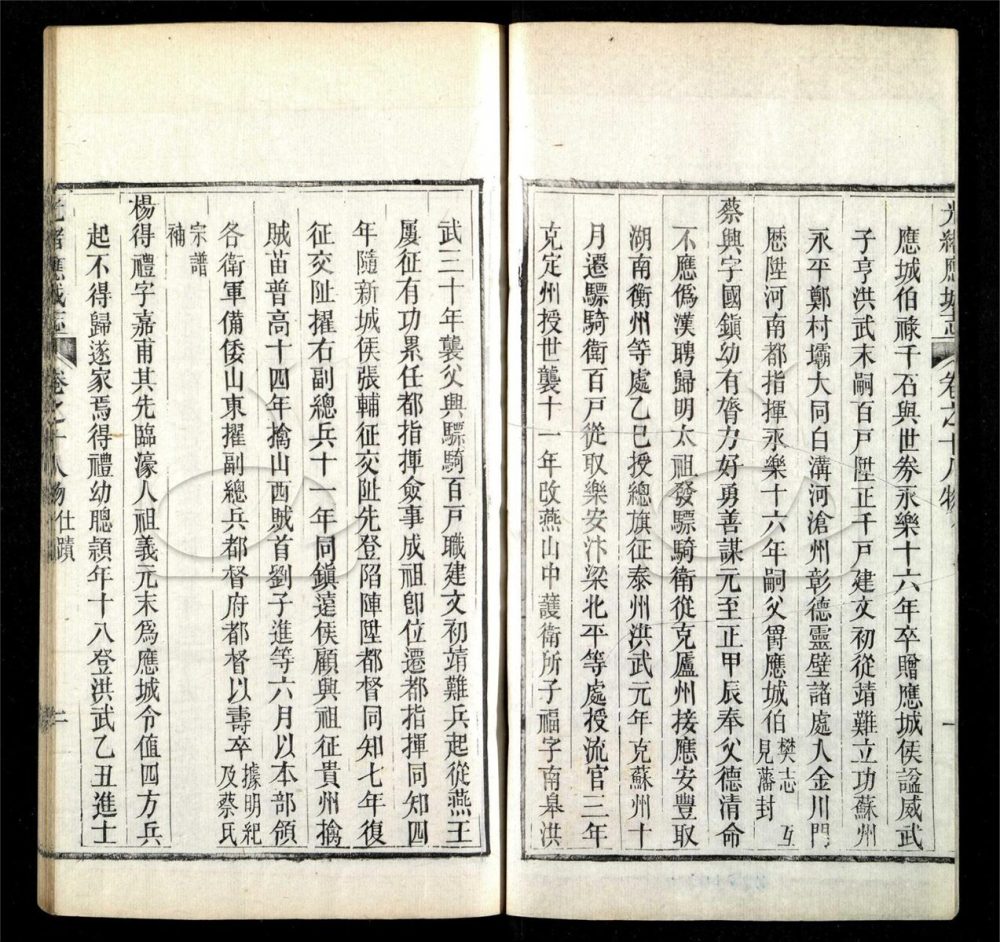 光緒應城志 卷之十 人物 一
應城伯祿千石與世劵永樂十六年卒贈應城侯謚威武
子亨洪武末嗣百戸陞正千戸建文初從靖難立功蘇州
永平鄭村壩大同白溝河滄州彰德靈壁諸處入金川門
歷陞河南都指揮永樂十六年嗣父爵應城伯 樊志 互見藩封
蔡興字國鎮幼有膂力好勇善謀元至正甲辰奉父德清命
不應僞漢聘歸明太祖發驃騎衛從克廬州接應安豐取
湖南衡州等處乙巳授總旗征泰州洪武元年克蘇州十
月遷驃騎衛百戸從取樂安汴梁北平等處授流官三年
克定州授世襲十一年改燕山中護衛所子福字南皋洪
武三十年襲父興驃騎百戸職建文初靖難兵起從燕王
屢征有功累任都指揮僉事成祖卽位遷都指揮同知四
年隨新城侯張輔征交阯先登陷陣陞都督同知七年復
征交阯擢右副總兵十一年同鎮遠侯顧興祖征貴州擒
賊苗普高十四年擒山西賊首劉子進等六月以本部領
各衛軍備倭山東擢副總兵都督府都督以壽卒 據明紀及蔡氏
宗譜補
楊得禮字嘉甫其先臨濠人祖義元末爲應城令值四方兵
起不得歸遂家焉得禮幼聰頴年十八登洪武乙丑進士
光緒應城志 卷之十 人物 仕蹟 二